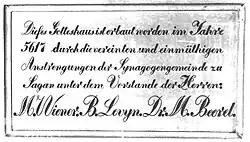 Dieses Gotteshaus ist erbaut worden im Jahre
5617 durch die vereinten und einmüthigen
Anstrengungen der Synagogengemeinde zu
Sagan unter dem Vorstande der Herren:
M. Wiener. B. Levyn. Dr. M. Beerel.